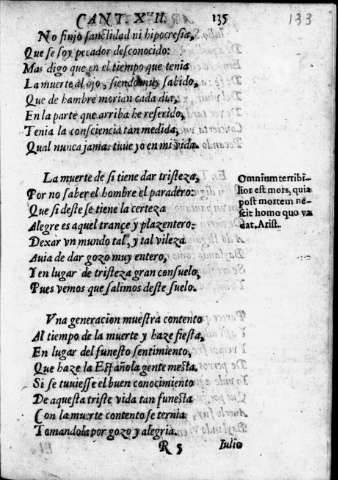 CANT. XVII. 135
133
No finjo sanctidad ni hipocresia,
Que se soy pecador desconocido:
Mas digo que en el tiempo que tenia
La muerte al ojo, siendo mas sabido,
Que de hambre morian cada dia,
En la parte que arriba he referido,
Tenia la consciencia tan medida,
Qual nunca jamas tuue yo en mi vida.
La muerte de si tiene dar tristeza,
Por no saber el hombre el paradero:
Que si deste se tiene la certeza
Alegre es aquel trance y plazentero:
Dexar vn mundo tal, y tal vileza
Auia de dar gozo muy entero,
Y en lugar de tristeza gran consuelo,
Pues vemos que salimos deste suelo.
Omnium terribi-
lior est mors, quia
post mortem nes-
cit homo quo va
dat, Arist.
Vna generacion muestra contento
Al tiempo de la muerte y haze fiesta,
En lugar del funesto sentimiento,
Que haze la Española gente mesta.
Si se tuuiesse el buen conocimiento
De aquesta triste vida tan funesta
Con la muerte contento se ternia
Tomandola por gozo y alegria.
R 5 Iulio